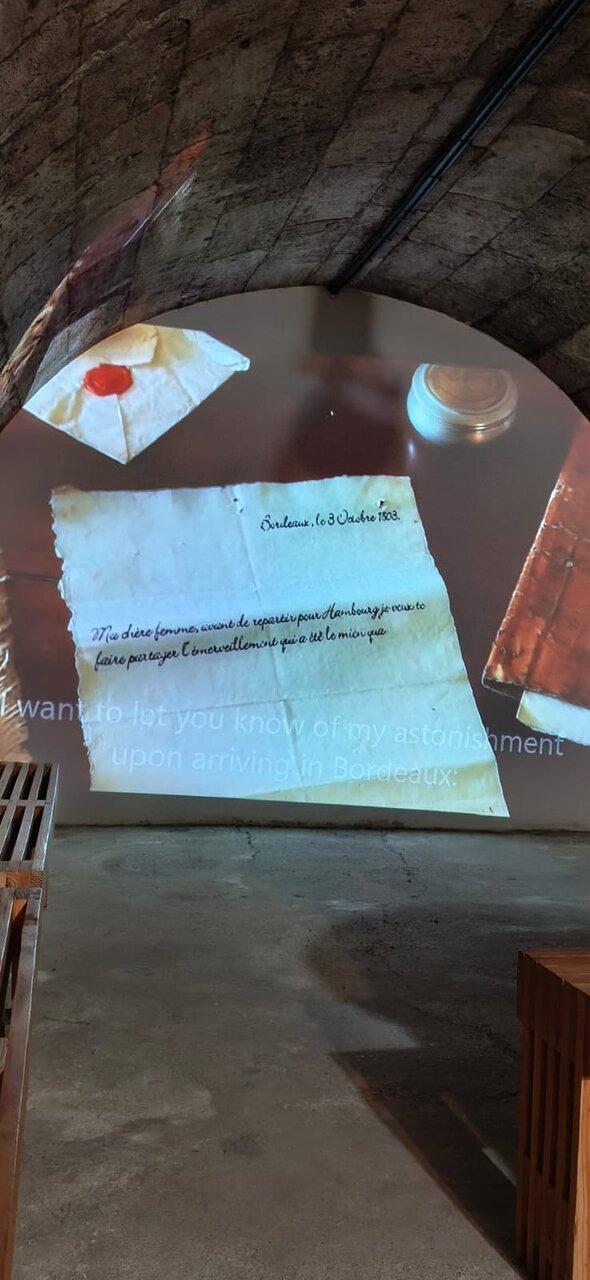 Bordeaux, le 3 Octobre 1803.
Ma chère femme, avant de repartir pour Hambourg je veux te
faire partager l'émerveillement qui a été le mien qua
I want to let you know of my astonishment
upon arriving in Bordeaux: